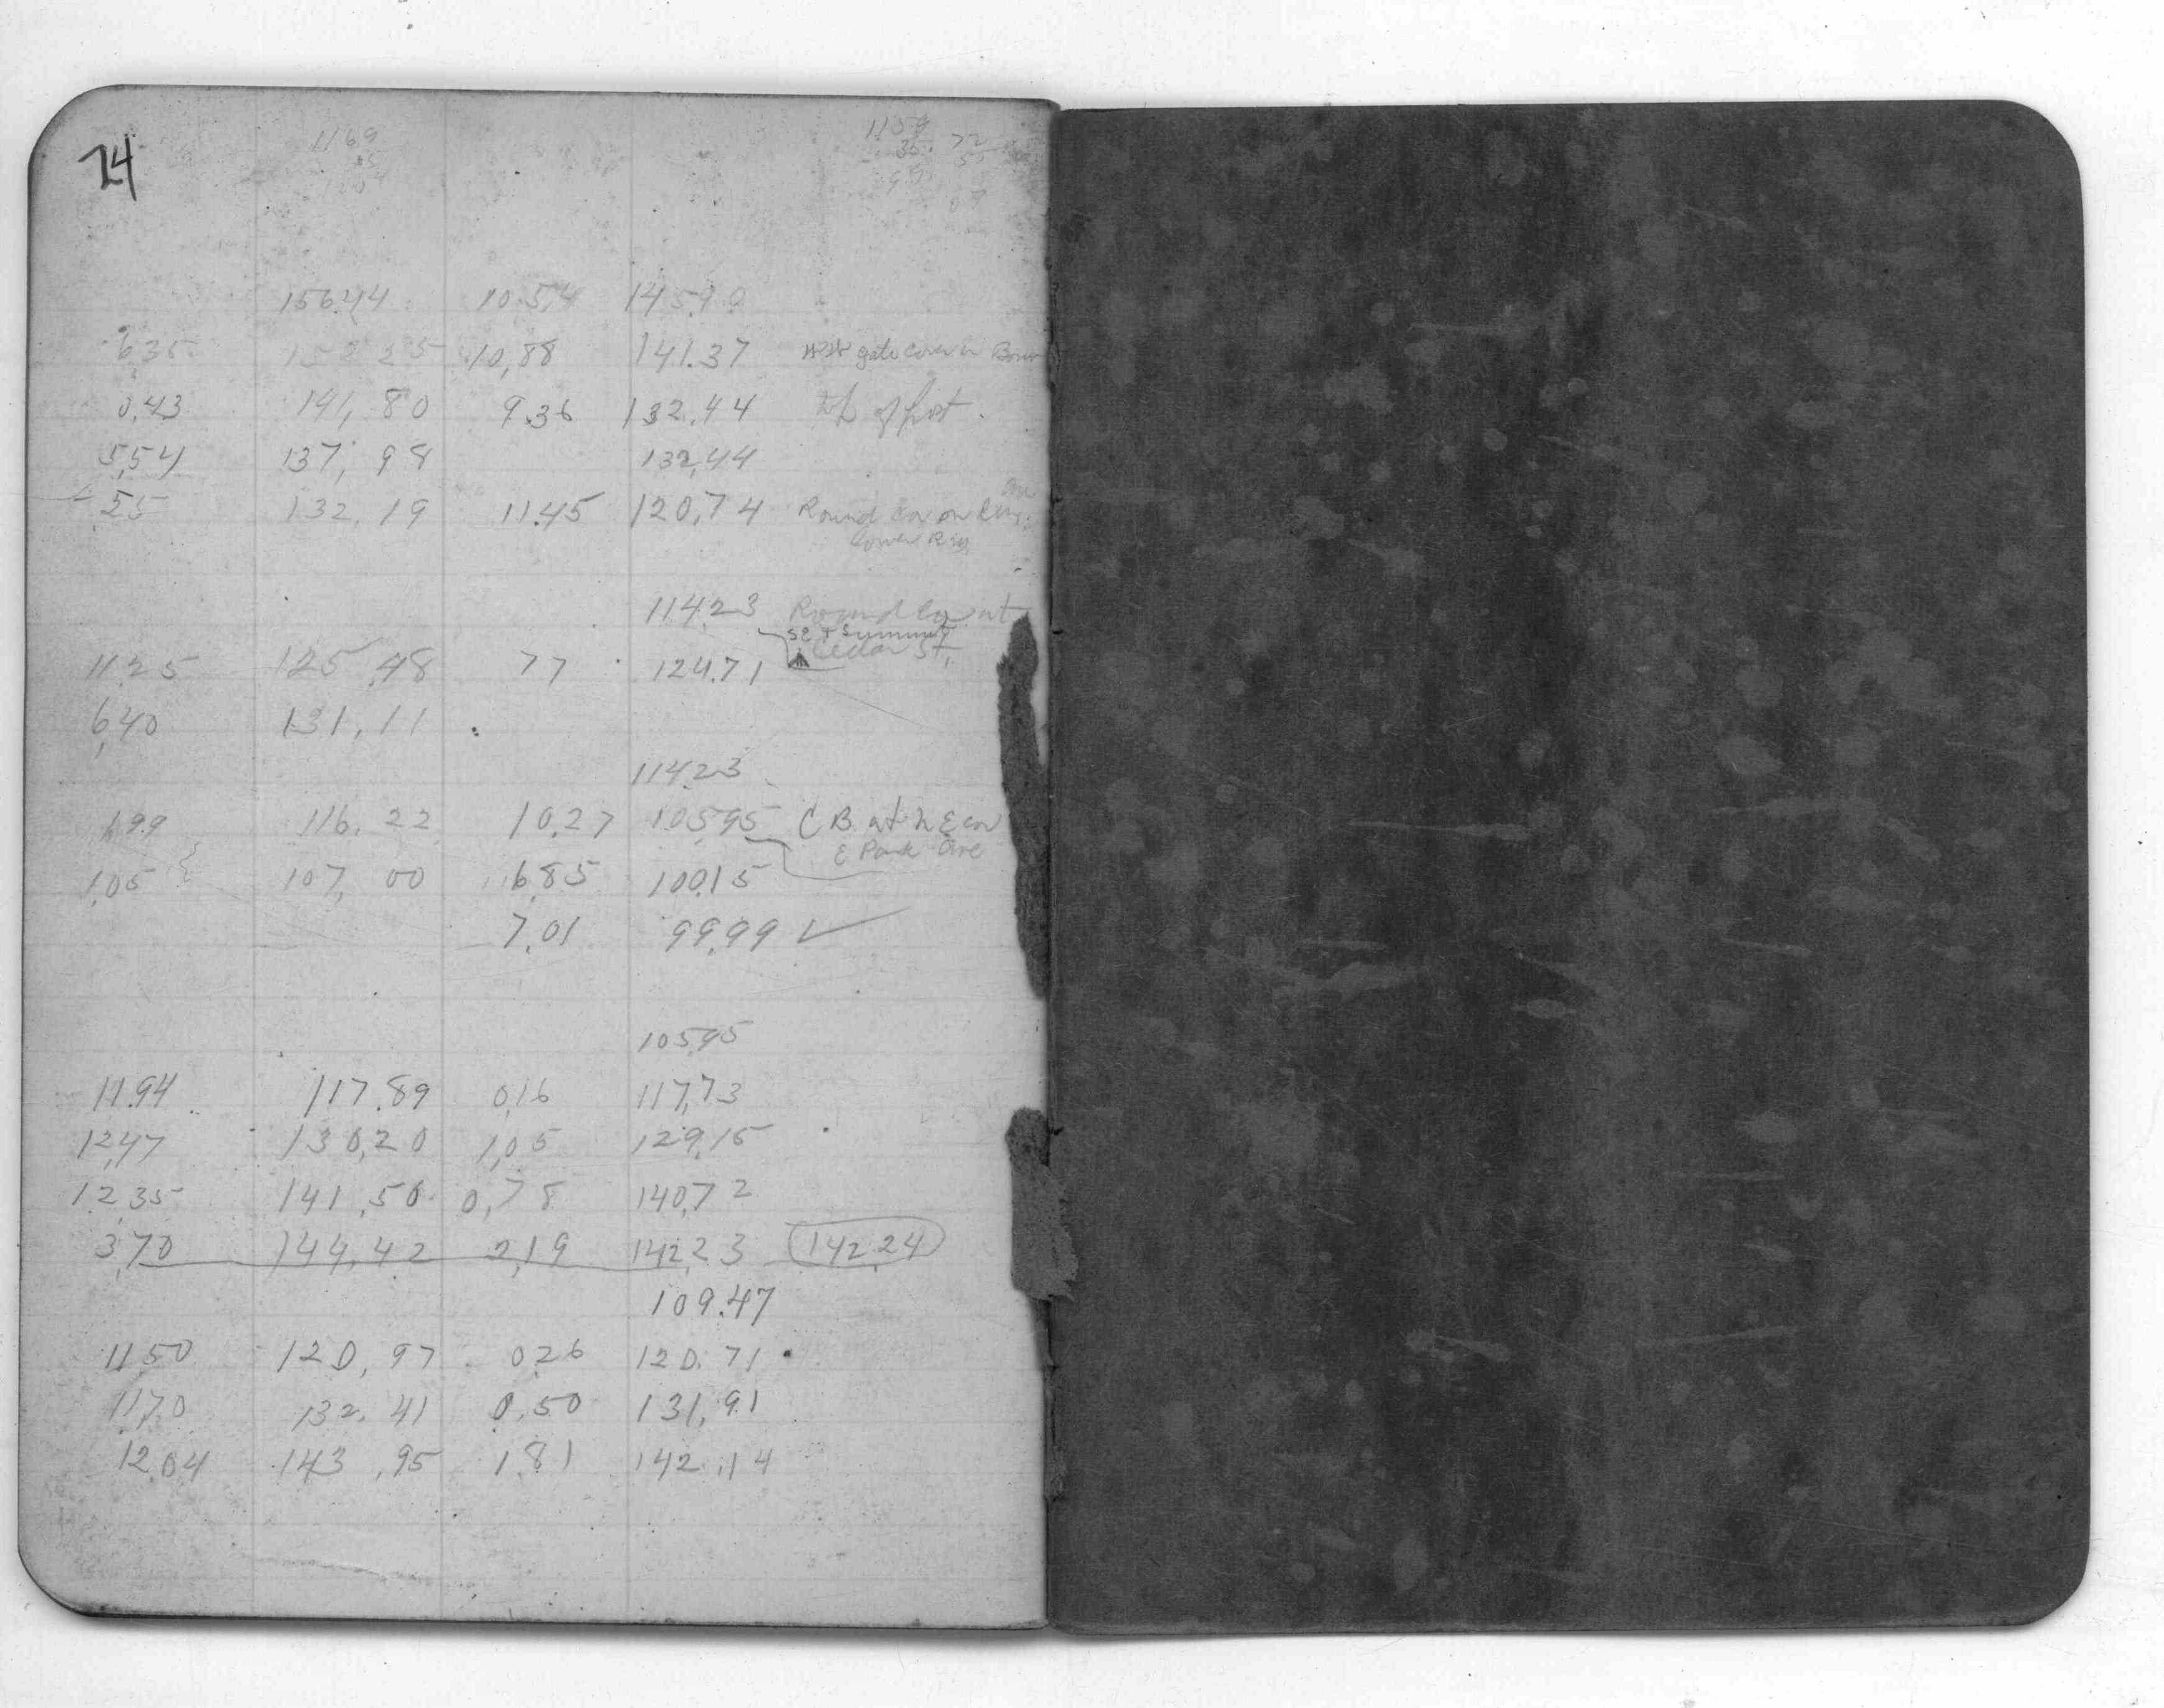 74
1169
1159
72
156.44 10.54 145.90
6.35 152.25 10.88 141.37 gate cover in
0.43 141.80 9.36 132.44 of hist.
5.54 137.98 132.44
.25 132.19 11.45 120.74 Round Cov on
cover Rim
114.23 Round Cov at
SE + Summit
Cedar St.
11.25 125.48 77 124.71
6.40 131.11
114.23
1.99 116.22 10.27 105.95 C B at N E cor
E Park Ave
1.05 107.00 6.85 100.15
7.01 99.99 ✓
105.95
11.94 117.89 0.16 117.73
12.47 130.20 1.05 129.15
12.35 141.50 0.78 140.72
3.70 144.42 2.19 142.23 142.24
109.47
11.50 120.97 0.26 120.71
11.70 132.41 0.50 131.91
12.04 143.95 1.81 142.14